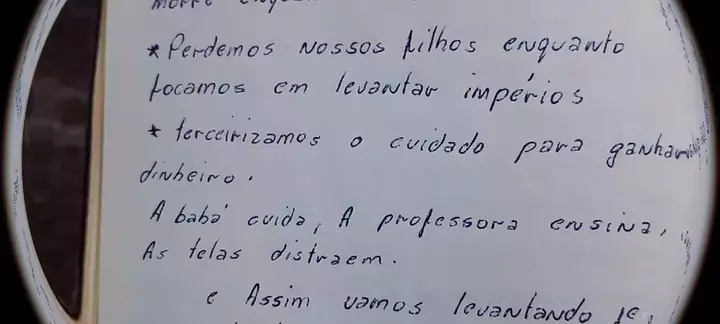 * Perdemos nossos filhos enquanto
focamos em levantar impérios
* terceirizamos o cuidado para ganhar
dinheiro.
A babá cuida, A professora ensina,
As telas distraem.
e Assim vamos levantando